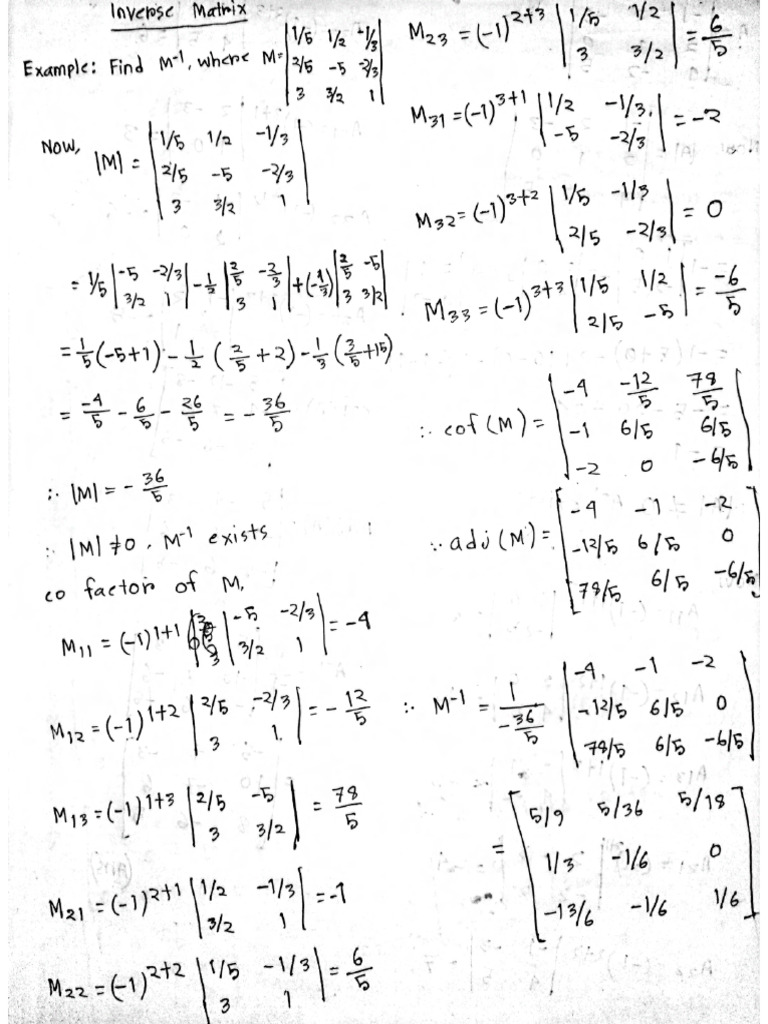 Inverse Matrix
Example: Find M⁻¹, where M = |1/5 1/2 -1/3|
|2/5 -5 -2/3|
|3 3/2 1|
Now, |M| = |1/5 1/2 -1/3|
|2/5 -5 -2/3|
|3 3/2 1|
= 1/5 |-5 -2/3; 3/2 1| - 1/2 |2/5 -2/3; 3 1| + (-1/3) |2/5 -5; 3 3/2|
= 1/5 (-5+1) - 1/2 (2/5 + 2) - 1/3 (3/5 + 15)
= -4/5 - 6/5 - 26/5 = - 36/5
∴ |M| = - 36/5
∴ |M| ≠ 0, M⁻¹ exists
co factors of M,
M₁₁ = (-1)¹⁺¹ |-5 -2/3; 3/2 1| = -4
M₁₂ = (-1)¹⁺² |2/5 -2/3; 3 1| = - 12/5
M₁₃ = (-1)¹⁺³ |2/5 -5; 3 3/2| = 78/5
M₂₁ = (-1)²⁺¹ |1/2 -1/3; 3/2 1| = -1
M₂₂ = (-1)²⁺² |1/5 -1/3; 3 1| = 6/5
M₂₃ = (-1)²⁺³ |1/5 1/2; 3 3/2| = 6/5
M₃₁ = (-1)³⁺¹ |1/2 -1/3; -5 -2/3| = -2
M₃₂ = (-1)³⁺² |1/5 -1/3; 2/5 -2/3| = 0
M₃₃ = (-1)³⁺³ |1/5 1/2; 2/5 -5| = -6/5
∴ cof (M) = |-4 -12/5 78/5|
|-1 6/5 6/5|
|-2 0 -6/5|
∴ adj (M) = [-4 -1 -2]
[-12/5 6/5 0]
[78/5 6/5 -6/5]
∴ M⁻¹ = 1/(-36/5) |-4 -1 -2|
|-12/5 6/5 0|
|78/5 6/5 -6/5|
= [5/9 5/36 5/18]
[1/3 -1/6 0]
[-13/6 -1/6 1/6]